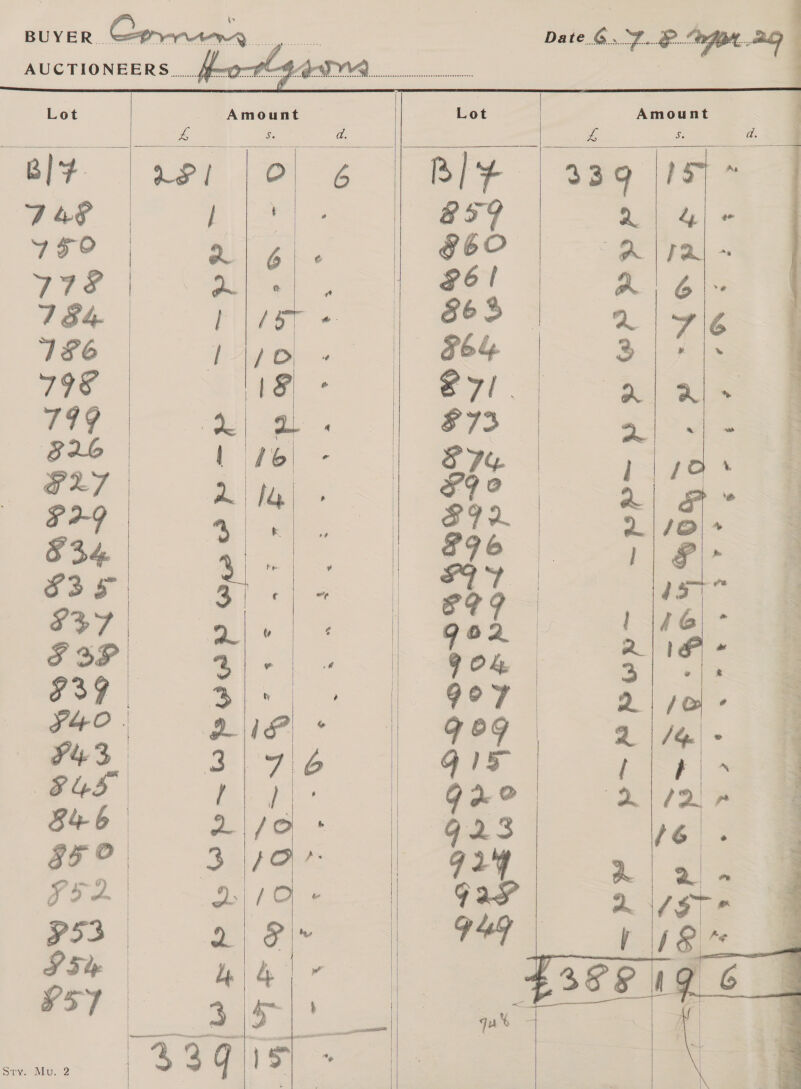 BUYER Comins
Date 6. 7. 8 Apr 29
AUCTIONEERS Hodgsons
Lot Amount
£ s. d.
B/F 281 0 6
748 1 " "
750 2 6 "
778 2 " "
784 1 15 "
786 1 10 "
798 18 "
799 2 2 "
826 1 16 "
827 2 14 "
829 3 " "
834 3 " "
835 3 " "
837 2 " "
838 3 " "
839 3 " "
840 2 18 "
843 3 7 6
845 1 1 "
846 2 10 "
850 3 10 "
852 2 10 "
853 2 8 "
854 4 4 "
857 3 5 "
339 15 "
Lot Amount
£ s. d.
B/F 339 15 "
859 2 4 "
860 2 12 "
861 2 6 "
863 2 7 6
864 3 " "
871 2 2 "
873 2 " "
874 1 10 "
890 2 8 "
892 2 10 "
896 1 8 "
897 15 "
899 1 16 "
902 2 18 "
904 3 " "
907 2 10 "
909 2 14 "
915 1 1 "
920 2 12 "
923 16 "
924 2 2 "
928 2 15 "
949 1 18 "
£388 19 6
Sty. Mu. 2